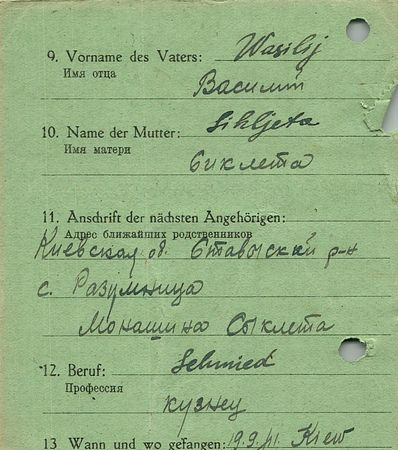 9. Vorname des Vaters: Wasilij
Имя отца Василий
10. Name der Mutter: Sikljeta
Имя матери Сиклета
11. Anschrift der nächsten Angehörigen:
Адрес ближайших родственников
Киевская об. Ставыский р-н
с. Разумница
Монашина Сыклета
12. Beruf: Schmied
Профессия кузнец
13 Wann und wo gefangen: 19.9.41. Kiew